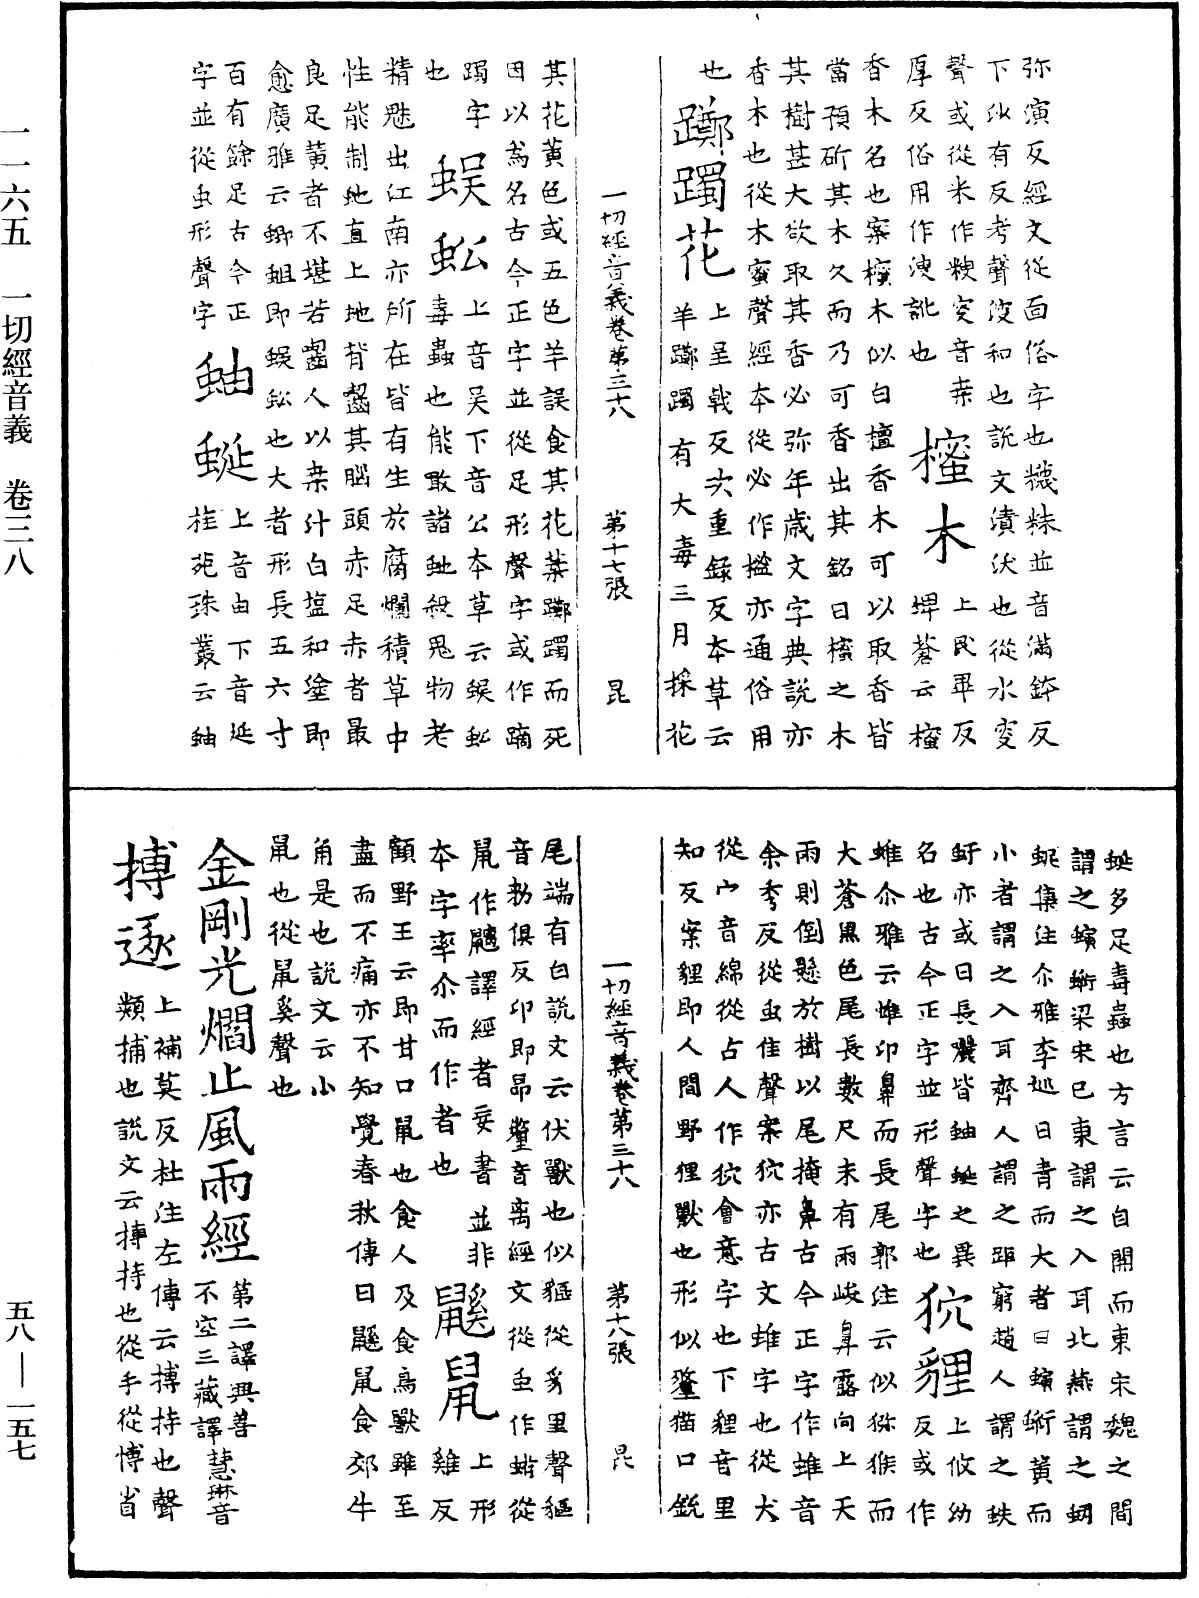 一一六五　一切經音義　卷三八
弥演反經文從面俗字也䊳粖並音滿鉢反
下沙有反考聲溲和也說文漬沃也從水叜
聲或從米作糔叜音桒
厚反俗用作溲訛也
櫁木
上民畢反
埤蒼云櫁
香木名也案櫁木似白檀香木可以取香皆
當預斫其木久而乃可香出其銘曰櫁之木
其樹甚大欲取其香必弥年歲文字典說亦
香木也從木蜜聲經本從必作榓亦通俗用
也
躑躅花
上呈戟反次重錄反本草云
羊躑躅有大毒三月採花
一切經音義卷第三十八　第十七張　昆
其花黃色或五色羊誤食其花葉躑躅而死
因以為名古今正字並從足形聲字或作蹢
躅字
也
蜈蚣
上音吴下音公本草云蜈蚣
毒蟲也能敢諸虵殺鬼物老
精魅出江南亦所在皆有生於腐爛積草中
性能制虵直上地背齧其腦頭赤足赤者最
良足黃者不堪若齧人以桒汁白塩和塗即
愈廣雅云蝍蛆即蜈蚣也大者形長五六寸
百有餘足古今正
字並從虫形聲字
蚰蜒
上音由下音延
桂苑珠叢云蚰
蜒多足毒蟲也方言云自開而東宋魏之間
謂之螾䘆梁宋已東謂之入耳北燕謂之䖡
蚭集注尒雅李巡曰青而大者曰螾䘆黃而
小者謂之入耳齊人謂之距窮趙人謂之蚨
虶亦或曰長䗯皆蚰蜒之異
名也古今正字並形聲字也
狖貍
上攸幼
反或作
蜼尒雅云蜼卬鼻而長尾郭注云似猕猴而
大蒼黑色尾長數尺末有兩岐鼻露向上天
雨則倒懸於樹以尾掩鼻古今正字作蜼音
余秀反從虫隹聲案狖亦古文蜼字也從犬
從宀音綿從占人作狖會意字也下貍音里
知反案貍即人間野狸獸也形似䝜猫口銳
一切經音義卷第三十八　第十八張　昆
尾端有白說文云伏獸也似貙從豸里聲貙
音勑俱反卬即昂䝜音离經文從虫作蛕從
鼠作䶈譯經者妄書並非
本字率尒而作者也
鼷鼠
上形
雞反
顧野王云即甘口鼠也食人及食鳥獸雖至
盡而不痛亦不知覺春秋傳曰鼷鼠食郊牛
角是也說文云小
鼠也從鼠奚聲也
金剛光爓止風雨經
第二譯興善
不空三藏譯慧琳音
搏逐
上補莫反杜注左傳云搏持也聲
類捕也說文云搏持也從手從博省
五八—一五七